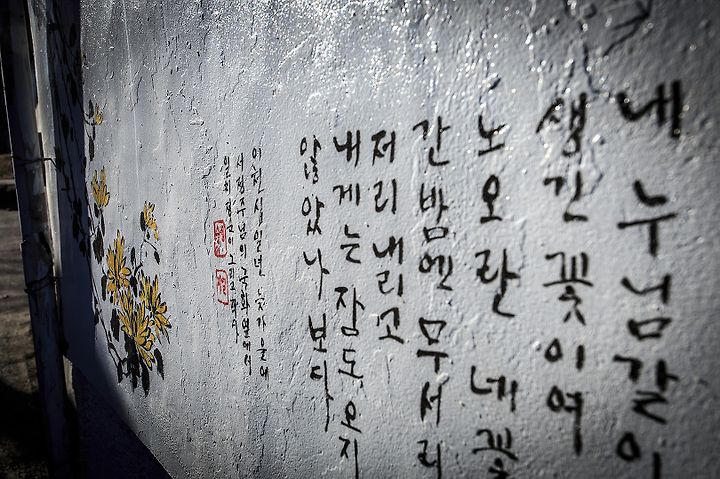 내 누님같이
생긴 꽃이여
노오란 네 꽃
간밤엔 무서리
저리 내리고
내게는 잠도 오지
않았나 보다
이천십일년 늦가을에
서정주님의 국화옆에서